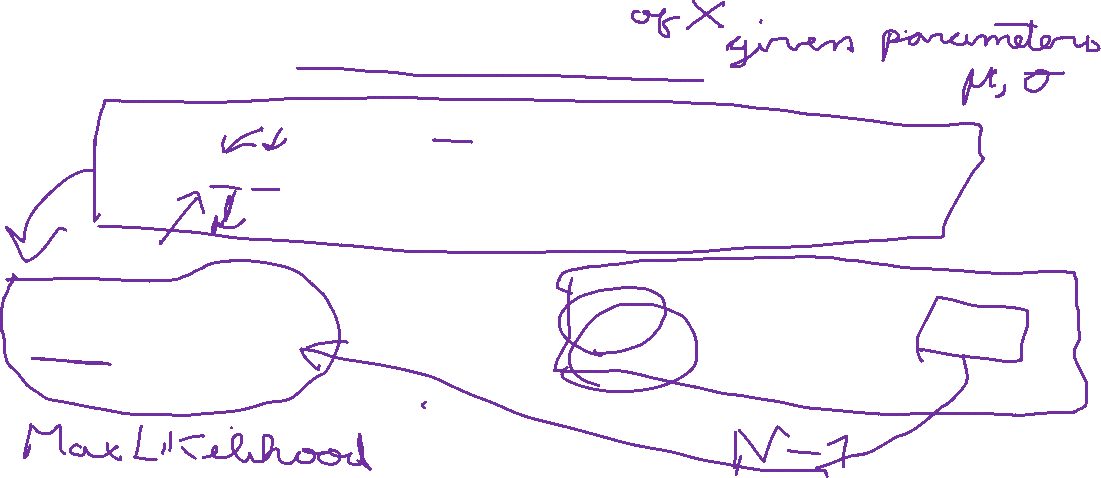 of X
given parameters
μ, σ
Max Likelihood
N-1